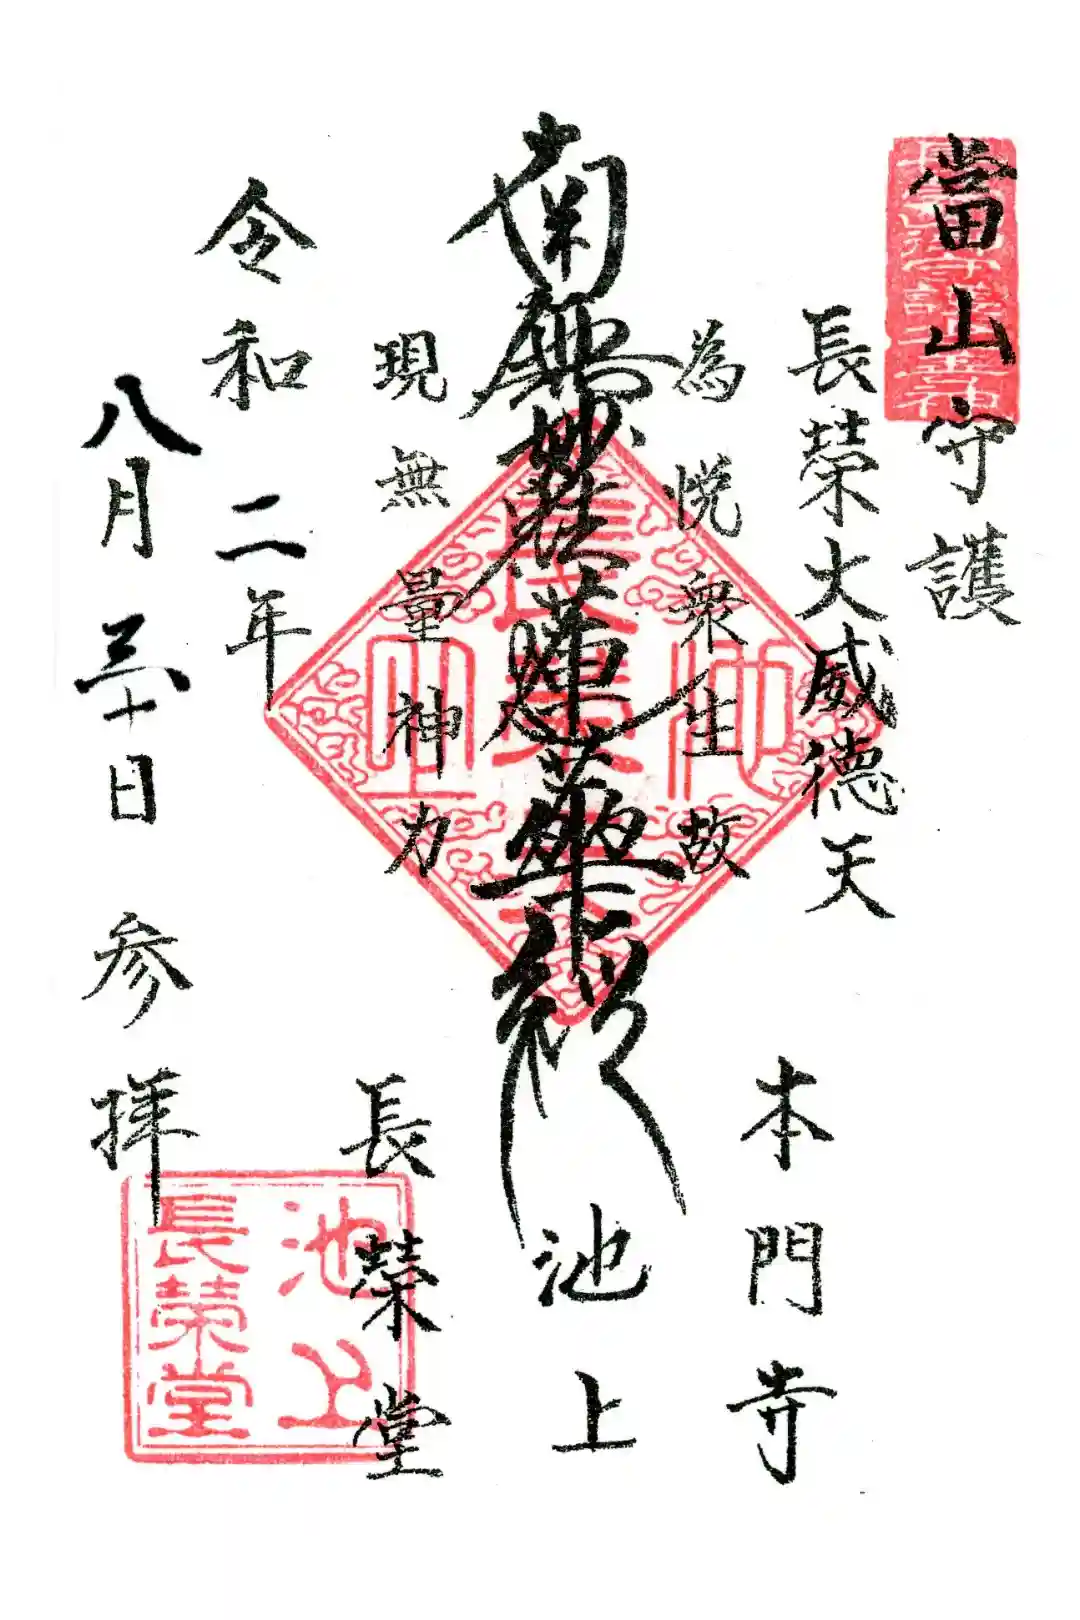 當山守護
長榮大威徳天
為悦衆生故
南無妙法蓮華経
現無量神力
令和二年
八月三十日参拝
本門寺
池上
長榮堂
長榮天
池上
池上
長榮堂